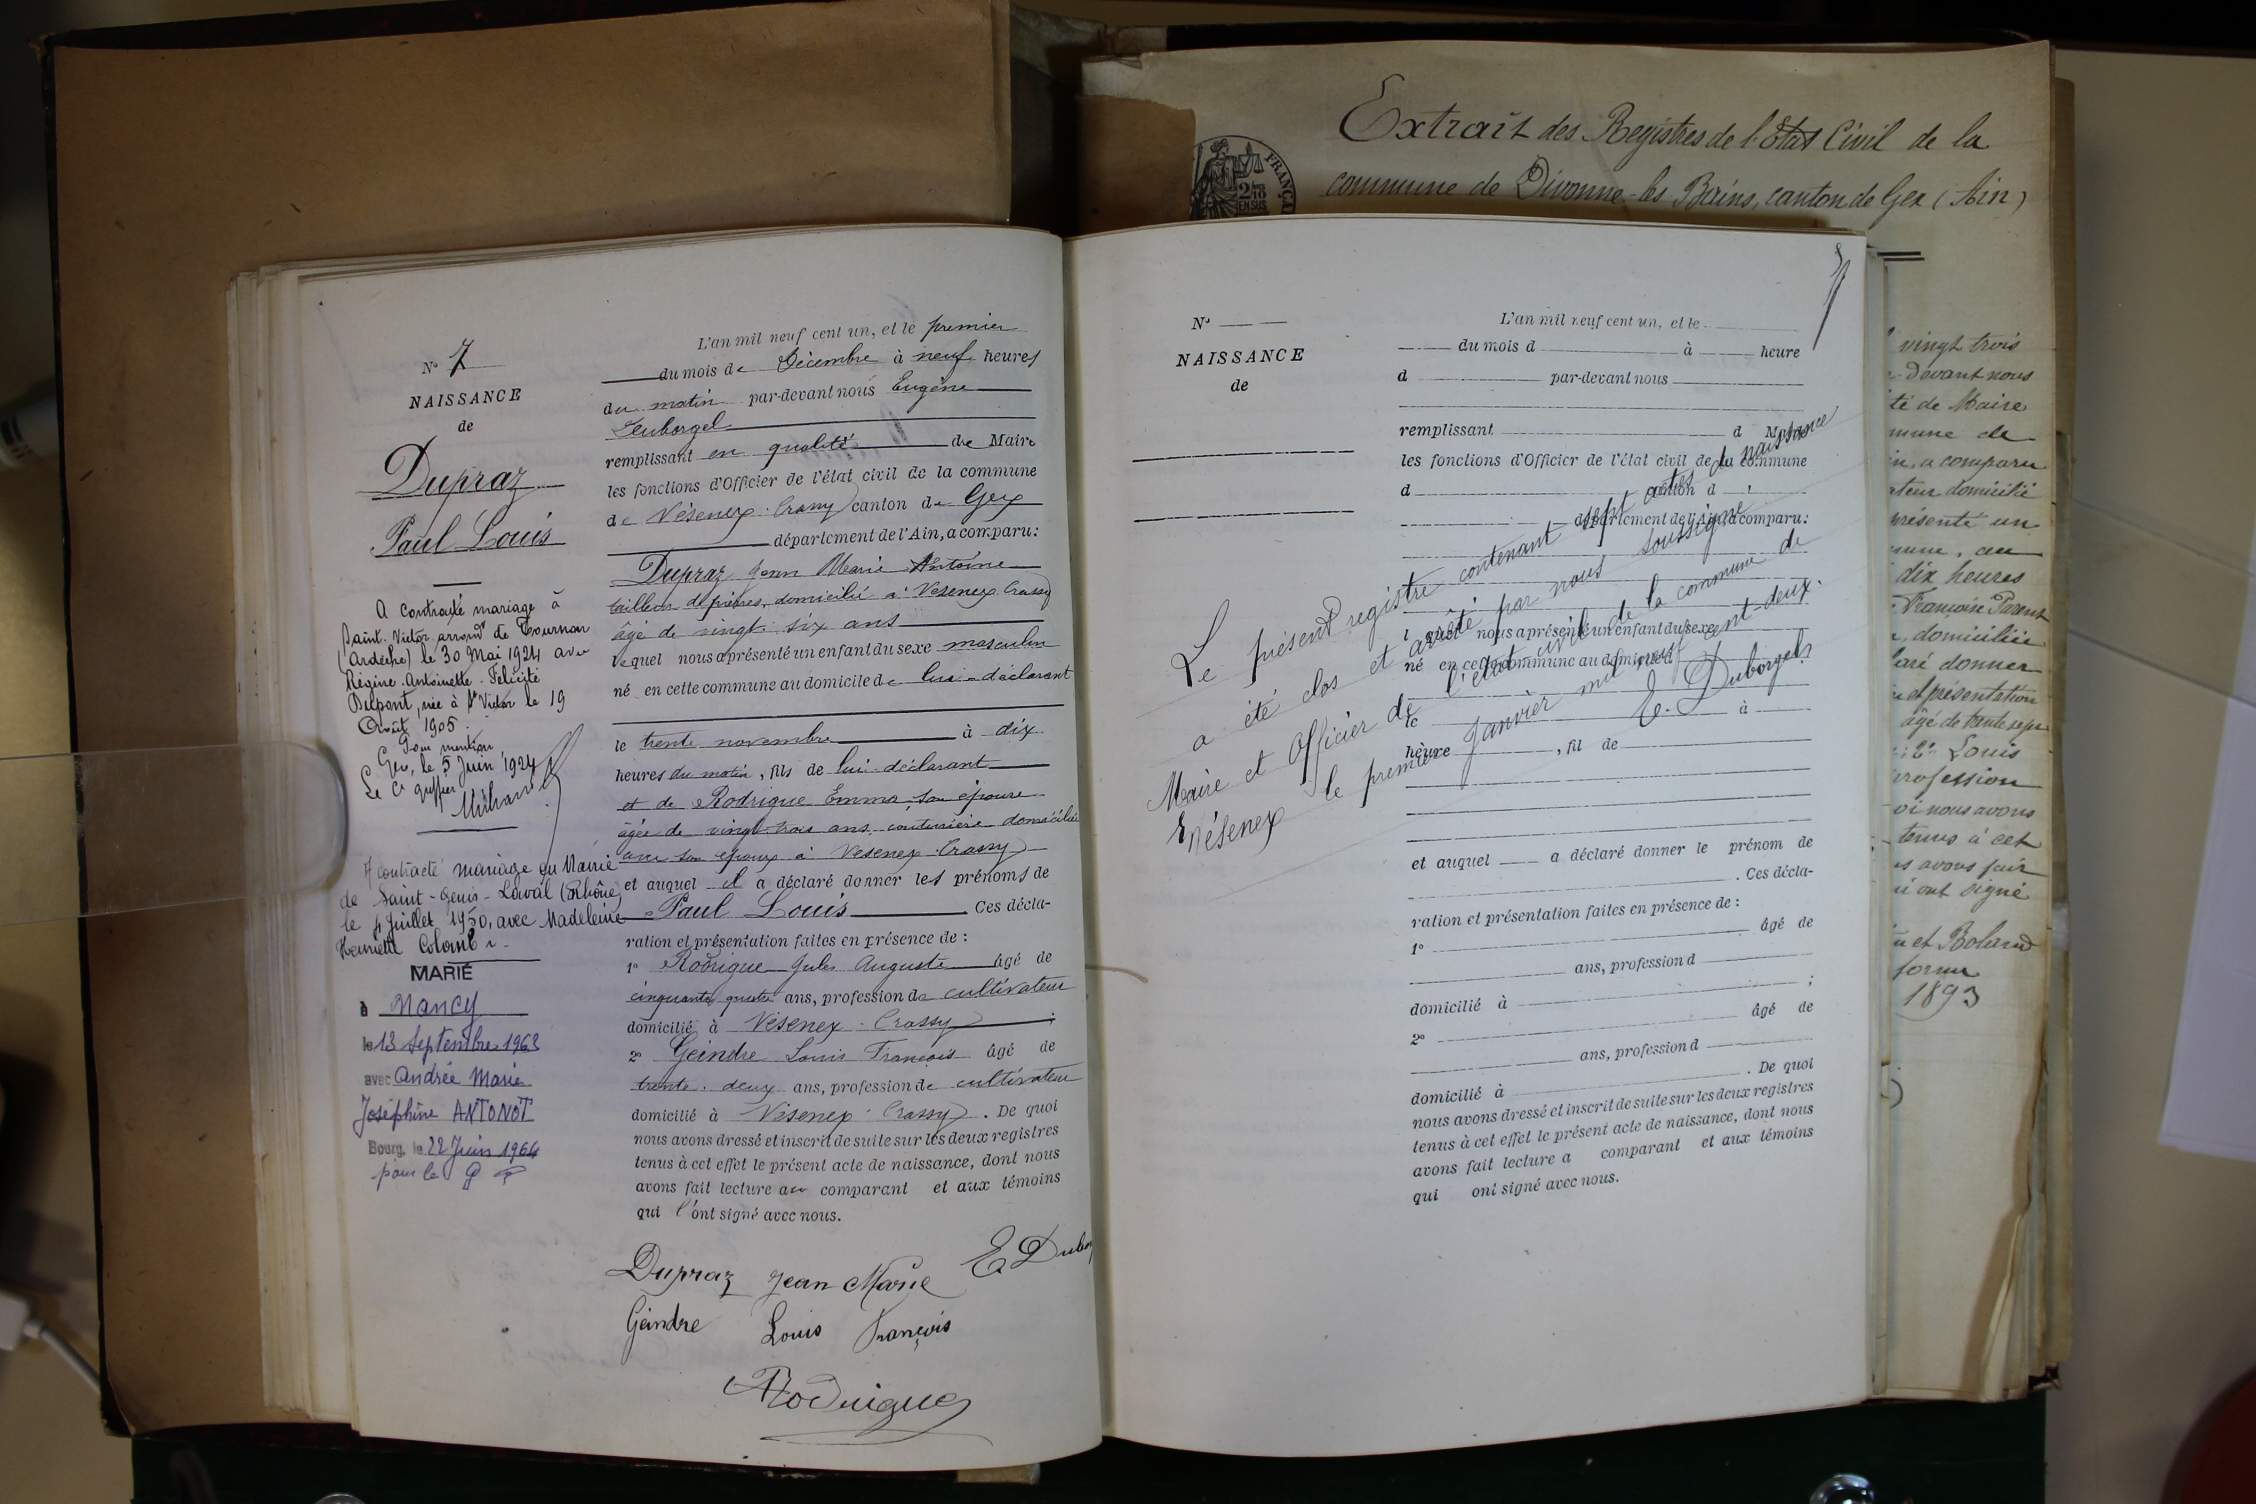 Extrait des Registres de l'Etat Civil de la
commune de Divonne-les-Bains, canton de Gex (Ain)
FRANÇAI
2
EN SUS
N° 7
NAISSANCE
de
Dupraz
Paul Louis
A contracté mariage à
Saint-Victor arrond^t de Tournon
(Ardèche) le 30 Mai 1924 avec
Régine-Antoinette-Felicité
Delpont, née à S^t Victor le 19
Août 1905.
Pour mention
Gex, le 5 Juin 1924
Le C^s greffier
A contracté mariage en Mairie
de Saint-Genis-Laval (Rhône)
le 4 Juillet 1950, avec Madeleine
Henriette Colomb
MARIÉ
à Nancy
le 13 Septembre 1963
avec Andrée Marie
Joséphine ANTONOT
Bourg, le 22 Juin 1964
pour le
L'an mil neuf cent un, et le premier
du mois de Décembre à neuf heures
du matin par-devant nous Eugène
Duborgel
remplissant en qualité de Maire
les fonctions d'Officier de l'état civil de la commune
de Vésenex-Crassy canton de Gex
département de l'Ain, a comparu:
Dupraz Jean Marie Antoine
tailleur de pierres, domicilié à Vesenex-Crassy
âgé de vingt-six ans
lequel nous a présenté un enfant du sexe masculin
né en cette commune au domicile de lui-déclarant
le trente novembre à dix
heures du matin, fils de lui-déclarant
et de Rodrigue Emma, son épouse
âgée de vingt-trois ans, couturière domiciliée
avec son époux à Vesenex-Crassy
et auquel il a déclaré donner les prénoms de
Paul Louis. Ces décla-
ration et présentation faites en présence de :
1° Rodrigue Jules Auguste âgé de
cinquante quatre ans, profession de cultivateur
domicilié à Vésenex-Crassy ;
2° Geindre Louis François âgé de
trente-deux ans, profession de cultivateur
domicilié à Vésenex-Crassy. De quoi
nous avons dressé et inscrit de suite sur les deux registres
tenus à cet effet le présent acte de naissance, dont nous
avons fait lecture au comparant et aux témoins
qui l'ont signé avec nous.
Dupraz Jean Marie E Dubor
Geindre Louis François
Rodrigue
N°
NAISSANCE
de
L'an mil neuf cent un, et le
du mois d à heure
d par-devant nous
remplissant d Maire
les fonctions d'Officier de l'état civil de la commune
d canton d
département de l'Ain, a comparu:
l quel nous a présenté un enfant du sexe
né en cette commune au domicile d
le à
heure , fil de
et auquel a déclaré donner le prénom de
. Ces décla-
ration et présentation faites en présence de :
1° âgé de
ans, profession d
domicilié à ;
2° âgé de
ans, profession d
domicilié à . De quoi
nous avons dressé et inscrit de suite sur les deux registres
tenus à cet effet le présent acte de naissance, dont nous
avons fait lecture a comparant et aux témoins
qui ont signé avec nous.
Le présent registre contenant sept actes de naissance
a été clos et arrêté par nous soussigné
Maire et Officier de l'état civil de la commune de
Vésenex le premier Janvier mil neuf cent-deux.
E. Duborgel
vingt trois
devant nous
té de Maire
mune de
in, a comparu
ateur domicilié
présenté un
mune, au
dix heures
Françoise Parent
domiciliée
laré donner
et présentation
âgé de trente sept
2° Louis
profession
oi nous avons
tenus à cet
us avons fait
ui ont signé
et Boland
forme
1893